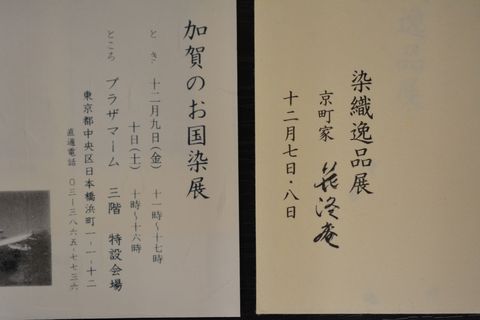 染織逸品展
京町家 花洛庵
十二月七日・八日
加賀のお国染展
とき 十二月九日(金) 十一時〜十七時
十日(土) 十時〜十六時
ところ プラザマーム 三階 特設会場
東京都中央区日本橋浜町一-一-十二
直通電話 〇三-三八六五-七七三六